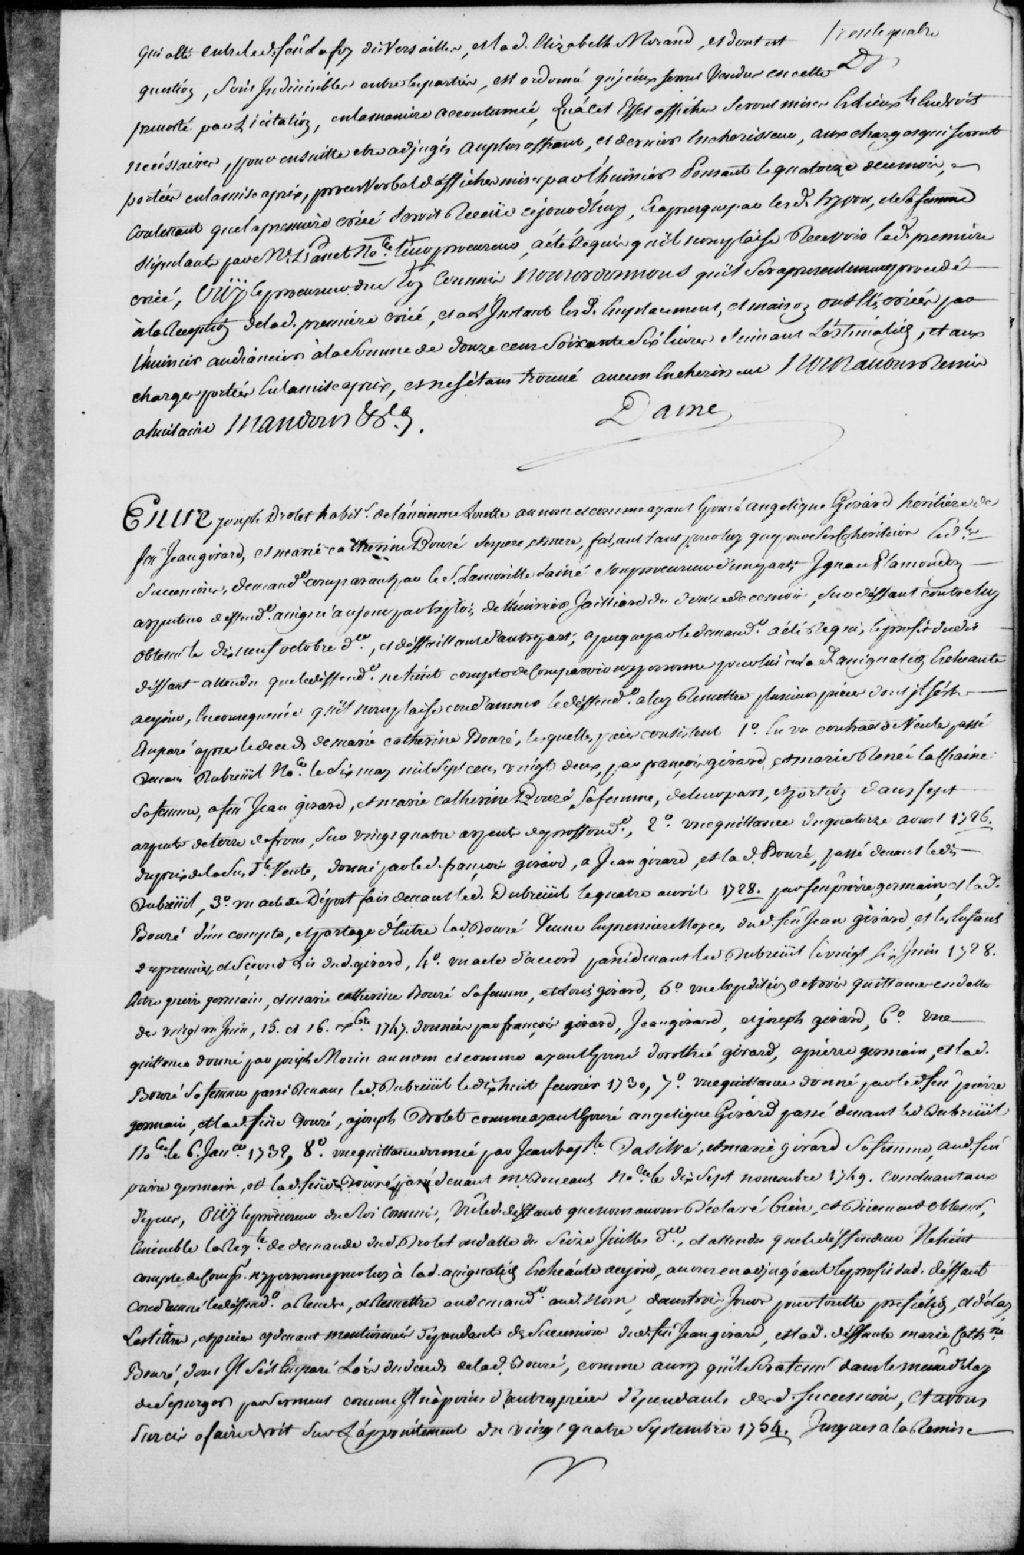 trente quatre
qui a été entre led. feu Lafoy de Versailles, et lad. Elizabeth Morand, et dont est
question, sont Indivisibles entre les parties, est ordonné qu'iceux seront vendus en cette
prevosté par Licitation, en la maniere accoutumée, Qu'à cet Effet affiches seront mises Es Lieux Et Endroits
necéssaires, pour ensuitte etre adjugés au plus offrant, et dernier Encherisseur, aux charges qui seront
portées en la mise a prix, procès Verbal d'affiches mises par l'huissier le quatorze de ce mois,
Contenant que la premiere criée seroit Reçüe cejourd'huy, Et apres que par lesd. et sa femme
stipulant par Me. Panet No.re leur procureur, a été Requis qu'il nous plaise Recevoir lad. premiere
criée, OÜY le procureur du Roy Commis Nous ordonnons qu'il sera presentement procedé
à la Reception de lad. premiere criée, et a L'Instant lesd. Emplacement, et maison ont Eté criés par
l'huissier audiancier à la somme de douze cens soixante six livres suivant L'estimation, et aux
charges portées En la mise a prix, et ne s'étant trouvé aucun Encherisseur Nous avons Remis
a huitaine Mandons &c.
Daine
Entre Joseph Drolet habit.t de l'ancienne Lorette au nom et comme ayant Epousé angelique Girard heritiere de
feu Jean girard, et marie catherine Bouré ses pere et mere, faisant tant pour luy que pour ses Coheritiers
Successions, demand.r comparant par le S. Lamorille L'ainé son procureur d'une part; Ignace Plamondon
deffend.r assigné a ce jour par Exploit de l'huissier du douze de ce mois, sur deffaut contre luy
obtenu le dix neuf octobre d.er, et deffaillant d'autre part; apres que par le demand.r a été Requis, le profit dudit
deffaut attendu que le deffend.r ne tient compte de Comparoir ny personne pour lui a l'assignation Echeante
a ce jour, En consequence qu'il nous plaise condamner le deffend.r a luy Remettre plusieurs pieces dont Il s'est
Emparé apres le deces de marie catherine Bouré, lesquelles pieces consistent 1.o En un contract de Vente passé
devant Dubreüil No.re le six may mil sept cens vingt deux, par françois girard, et marie Renée la Chaine
sa femme, a feu Jean girard, et marie catherine Bouré, sa femme, de leur part, et portion dans sept
arpents de terre de front, sur vingt quatre arpents de proffond.r, 2.o une quittance du quatorze avril 1726.
du prix de la susd.te Vente, donné par led. françois girard, a Jean girard, et lad. Bouré, passé devant ledit
Dubreüil, 3.o un acte de Dépost fait devant led. Dubreüil le quatre avril 1728. par feu pierre germain, et lad.
Bouré d'un compte, et partage d'Entre lad. Bouré Veuve En premieres Noces, dud. feu Jean girard, et les Enfants
du premier, et second Lit dud. girard, 4.o un acte d'accord passé devant led. Dubreüil le vingt six Juin 1728.
Entre pierre germain, et marie catherine Bouré sa femme, et Louis girard, 5.o une Expedition de trois quittances en datte
des vingt un Juin, 15. et 16. 1747. données par françois girard, Jean girard, et joseph girard, 6.o une
quittance donné par joseph Morin au nom et comme ayant Epousé dorothée girard, a pierre germain, et lad.
Bouré sa femme passé devant led. Dubreüil le dix huit fevrier 1730, 7.o une quittance donné par led. feu pierre
germain, et lad. feüe Bouré, a joseph Drolet comme ayant Epousé angelique Girard passé devant led. Dubreüil
No.re le 6. Jan.er 1732, 8.o une quittance donnée par Jean bap.te Dasilva, et marie girard sa femme, aud. feu
pierre germain, et lad. feüe Bouré passé devant me. No.re le dix sept novembre 1749. concluant aux
depens, OÜY le procureur du Roi Commis, Vû led. deffaut que nous avons déclaré bien, et düement obtenu,
Ensemble la Req.te de demande dud. Drolet en datte du seize Juillet d.er, et attendu que le deffendeur Ne tient
compte de Comp.r ny personne pour luy à lad. assignation Echeante a ce jour, avons en adjugeant le profit dud. deffaut
Condamné le deffend.r a Rendre, et Remettre au demand.r aud. Nom, dans trois Jours pour toutte prefixion, et délay
Les titres, et pieces cy devant mentionnés dependants des successions dud. feu Jean girard, et lad. deffunte marie Cath.ne
Bouré, dont Il s'est Emparé Lors du deces de lad. Bouré, comme aussy qu'il sera tenu dans le même délay
de se purger par serment comme Il n'a point d'autres pieces dépendantes desd. Successions, et avons
surcis a faire droit sur L'appointement du vingt quatre septembre 1754. Jusques a la Remise